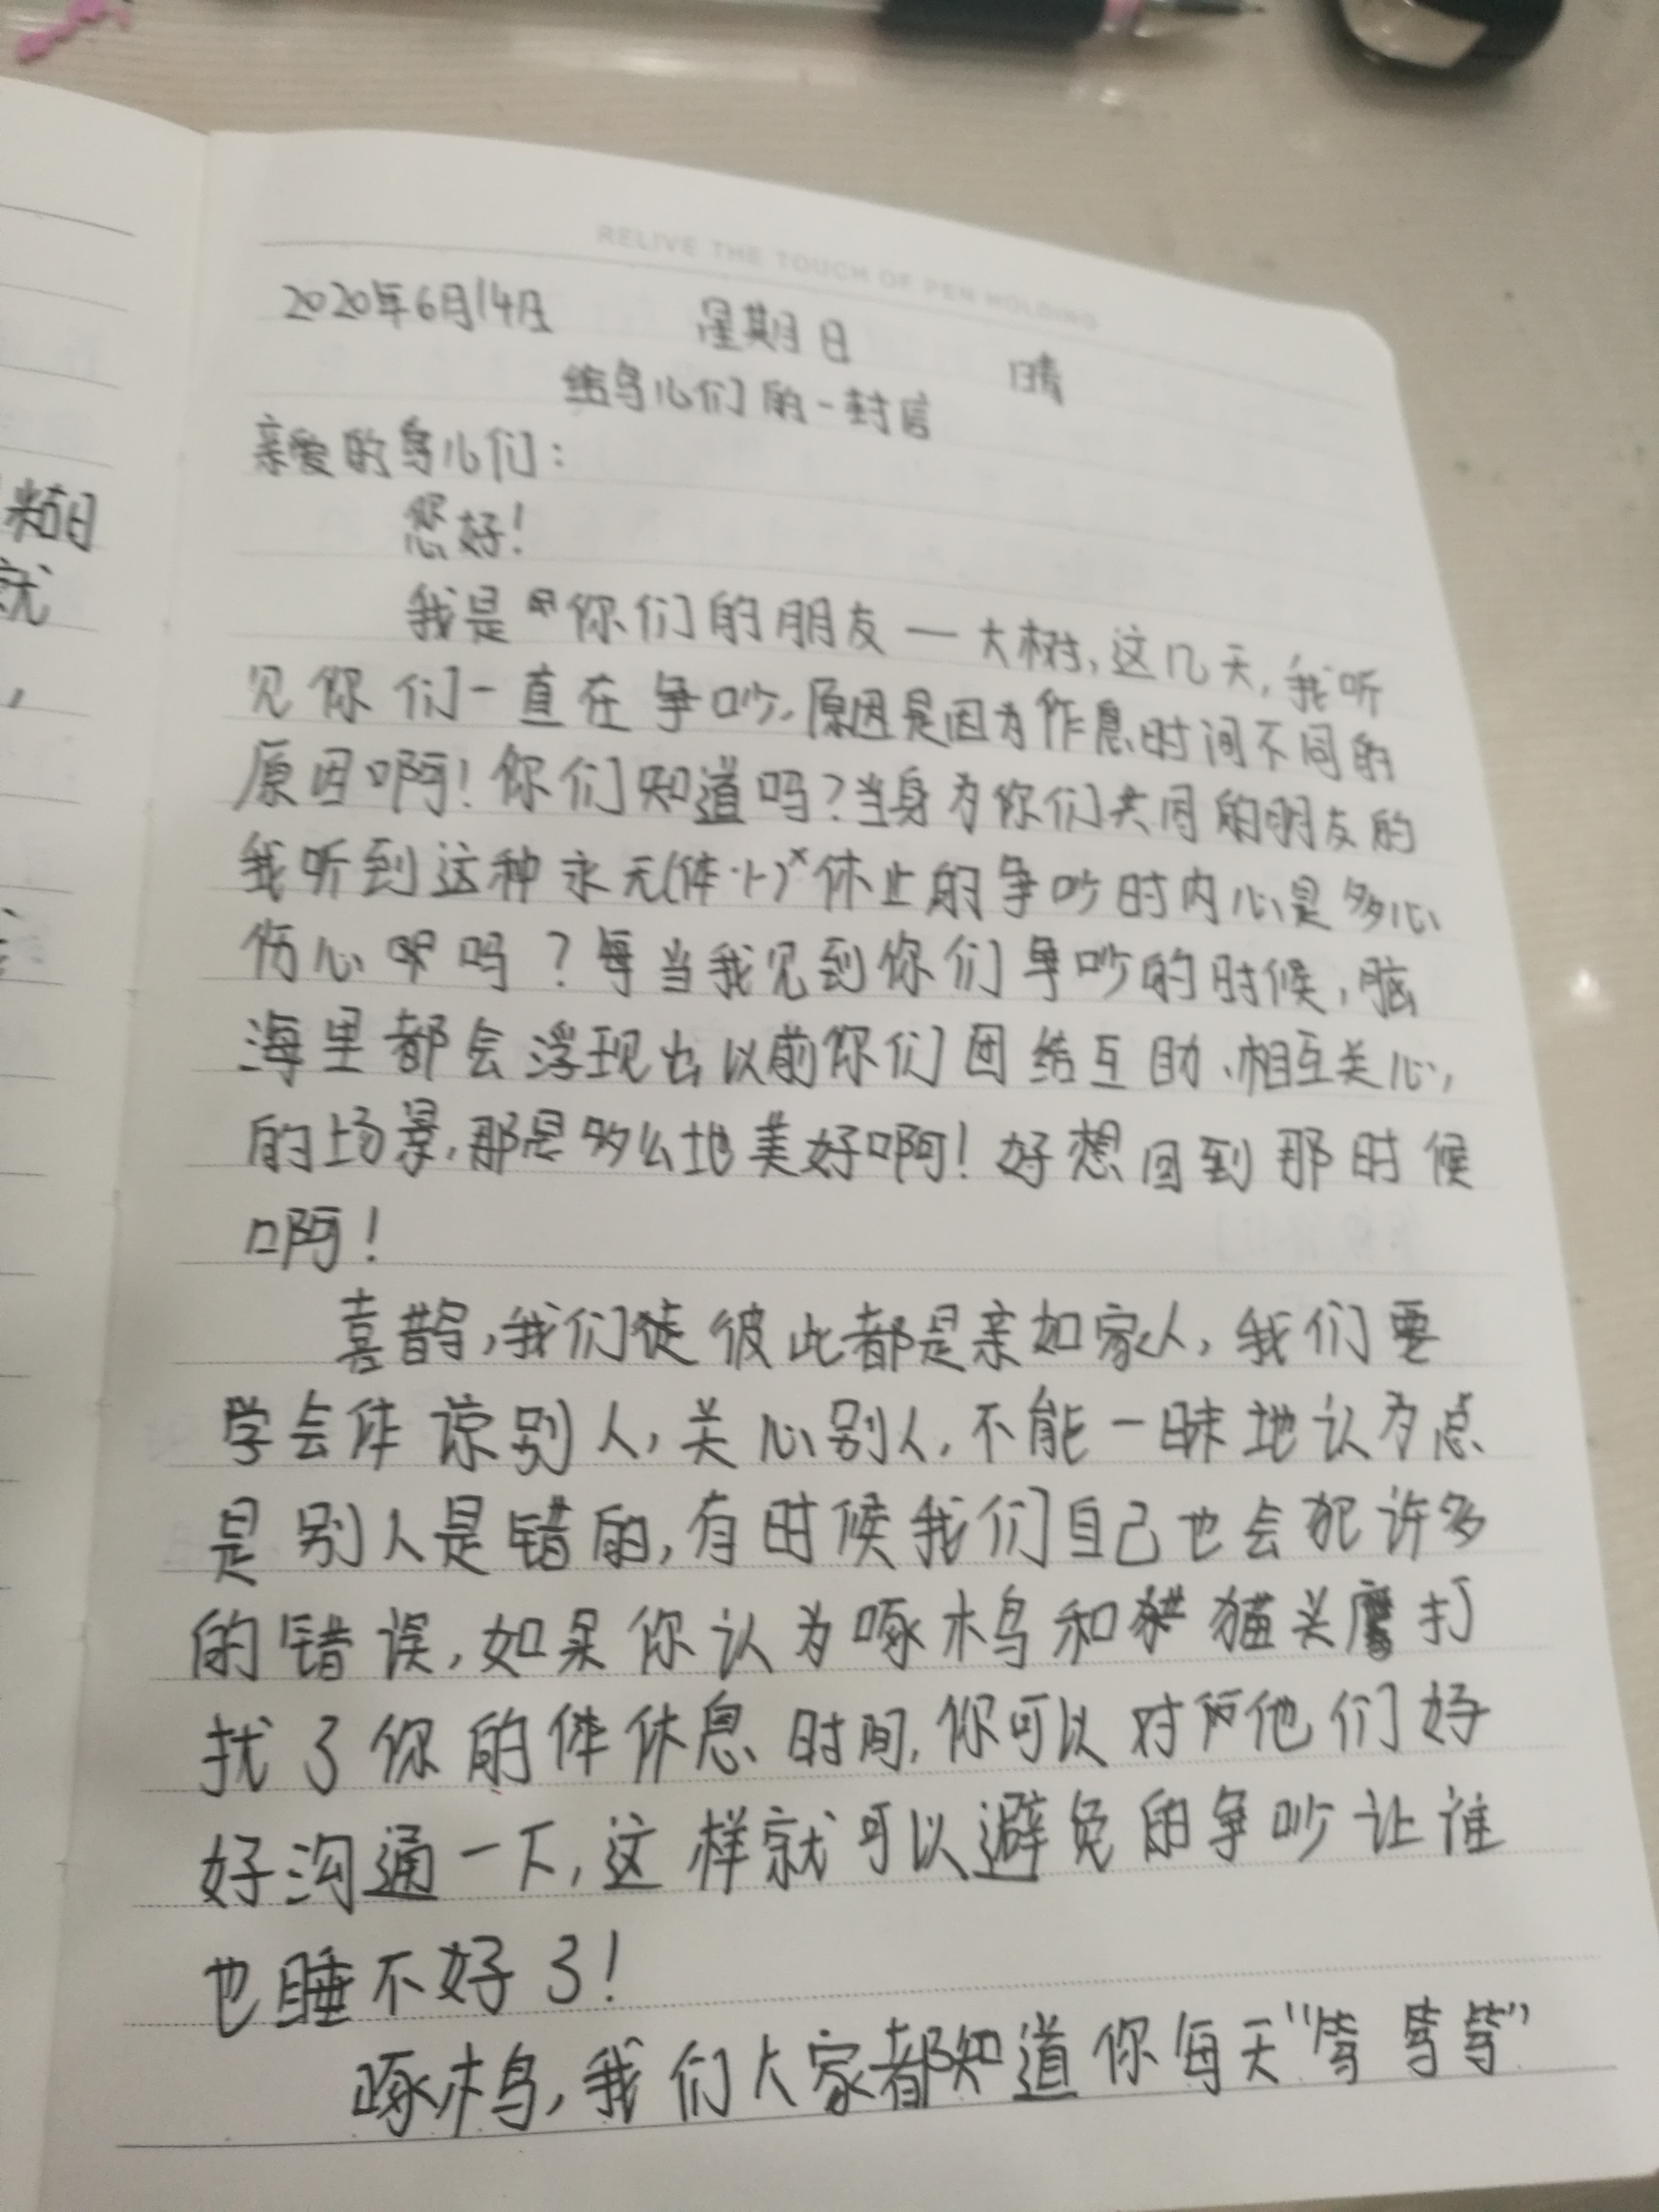 RELIVE THE TOUCH OF PEN HOLDING
2020年6月14日 星期日 晴
给鸟儿们的一封信
亲爱的鸟儿们：
您好！
我是你们的朋友一大树，这几天，我听
见你们一直在争吵，原因是因为作息时间不同的
原因啊！你们知道吗？当身为你们共同的朋友的
我听到这种永无(体止)×休止的争吵时内心是多心
伤心吗？每当我见到你们争吵的时候，脑
海里都会浮现出以前你们团结互助、相互关心，
的场景，那是多么地美好啊！好想回到那时候
啊！
喜鹊，我们徒彼此都是亲如家人，我们要
学会体谅别人，关心别人，不能一昧地认为总
是别人是错的，有时候我们自己也会犯许多
的错误，如果你认为啄木鸟和猫头鹰打
扰了你的体休息时间，你可以对他们好
好沟通一下，这样就可以避免的争吵让谁
也睡不好了！
啄木鸟，我们大家都知道你每天“笃笃笃”
糊
就
，